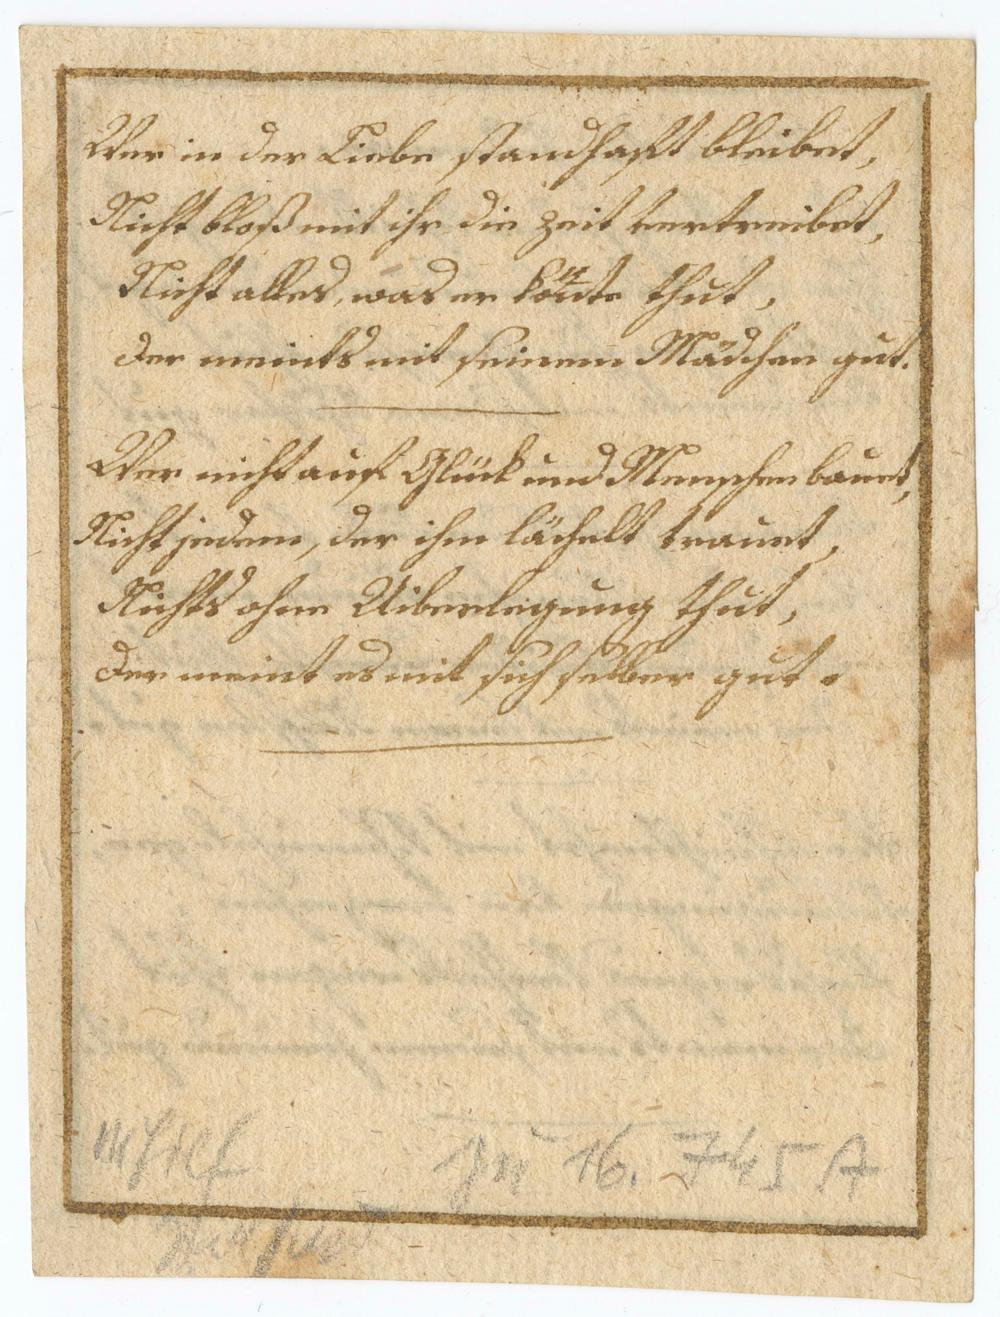 Wer in der Liebe standhaft bleibet,
Nicht bloß mit ihr die Zeit vertreibet,
Nicht alles, was er könte thut,
Der meints mit seinem Mädchen gut.
Wer nicht auf Glück und Menschen bauet,
Nicht jedem, der ihm lächelt trauet,
Nichts ohne Uiberlegung thut,
Der meint es mit sich selber gut.
16. 745 A